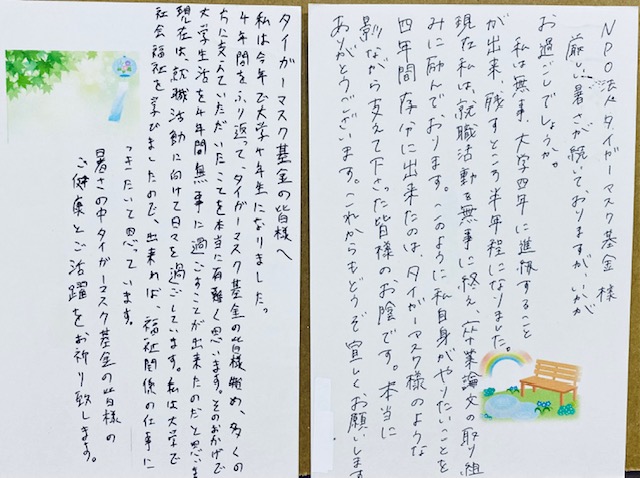 NPO法人タイガーマスク基金様
厳しい暑さが続いておりますが、いかが
お過ごしでしょうか。
私は無事、大学四年に進級すること
が出来、残すところ半年程になりました。
現在私は、就職活動を無事に終え、卒業論文の取り組
みに励んでおります。このように私自身がやりたいことを
四年間存分に出来たのは、タイガーマスク様のような
影ながら支えて下さった皆様のお陰です。本当に
ありがとうございます。これからもどうぞ宜しくお願いします
タイガーマスク基金の皆様へ
私は今年で大学4年生になりました。
4年間をふり返って、タイガーマスク基金の皆様始め、多くの
ちに支えていただいたことを本当に有難く思います。そのおかげで
大学生活を4年間無事に過ごすことが出来たのだと思いま
現在は、就職活動に向けて日々を過ごしています。私は大学で
社会福祉を学びましたので、出来れば、福祉関係の仕事に
つきたいて思っています。
暑さの中タイガーマスク基金の皆様の
ご健康とご活躍をお祈り致します。